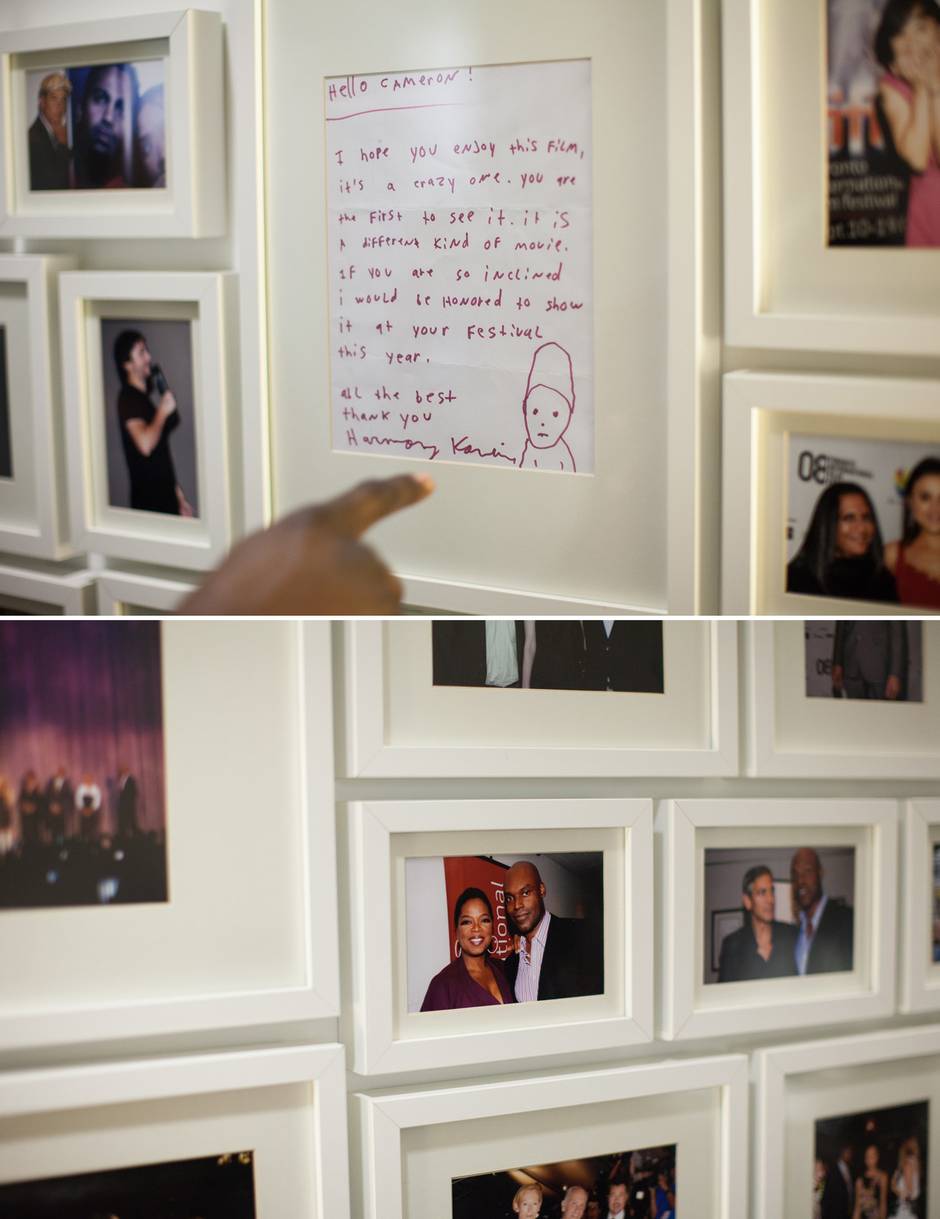 Hello CAMERON!
I hope you enjoy this film,
it's a crazy one. you are
the First to see it. it is
A different kind of movie.
if you are so inclined
i would be Honored to show
it at your Festival
this year.
all the best
thank you
Harmony Korine
Festival
08
tional